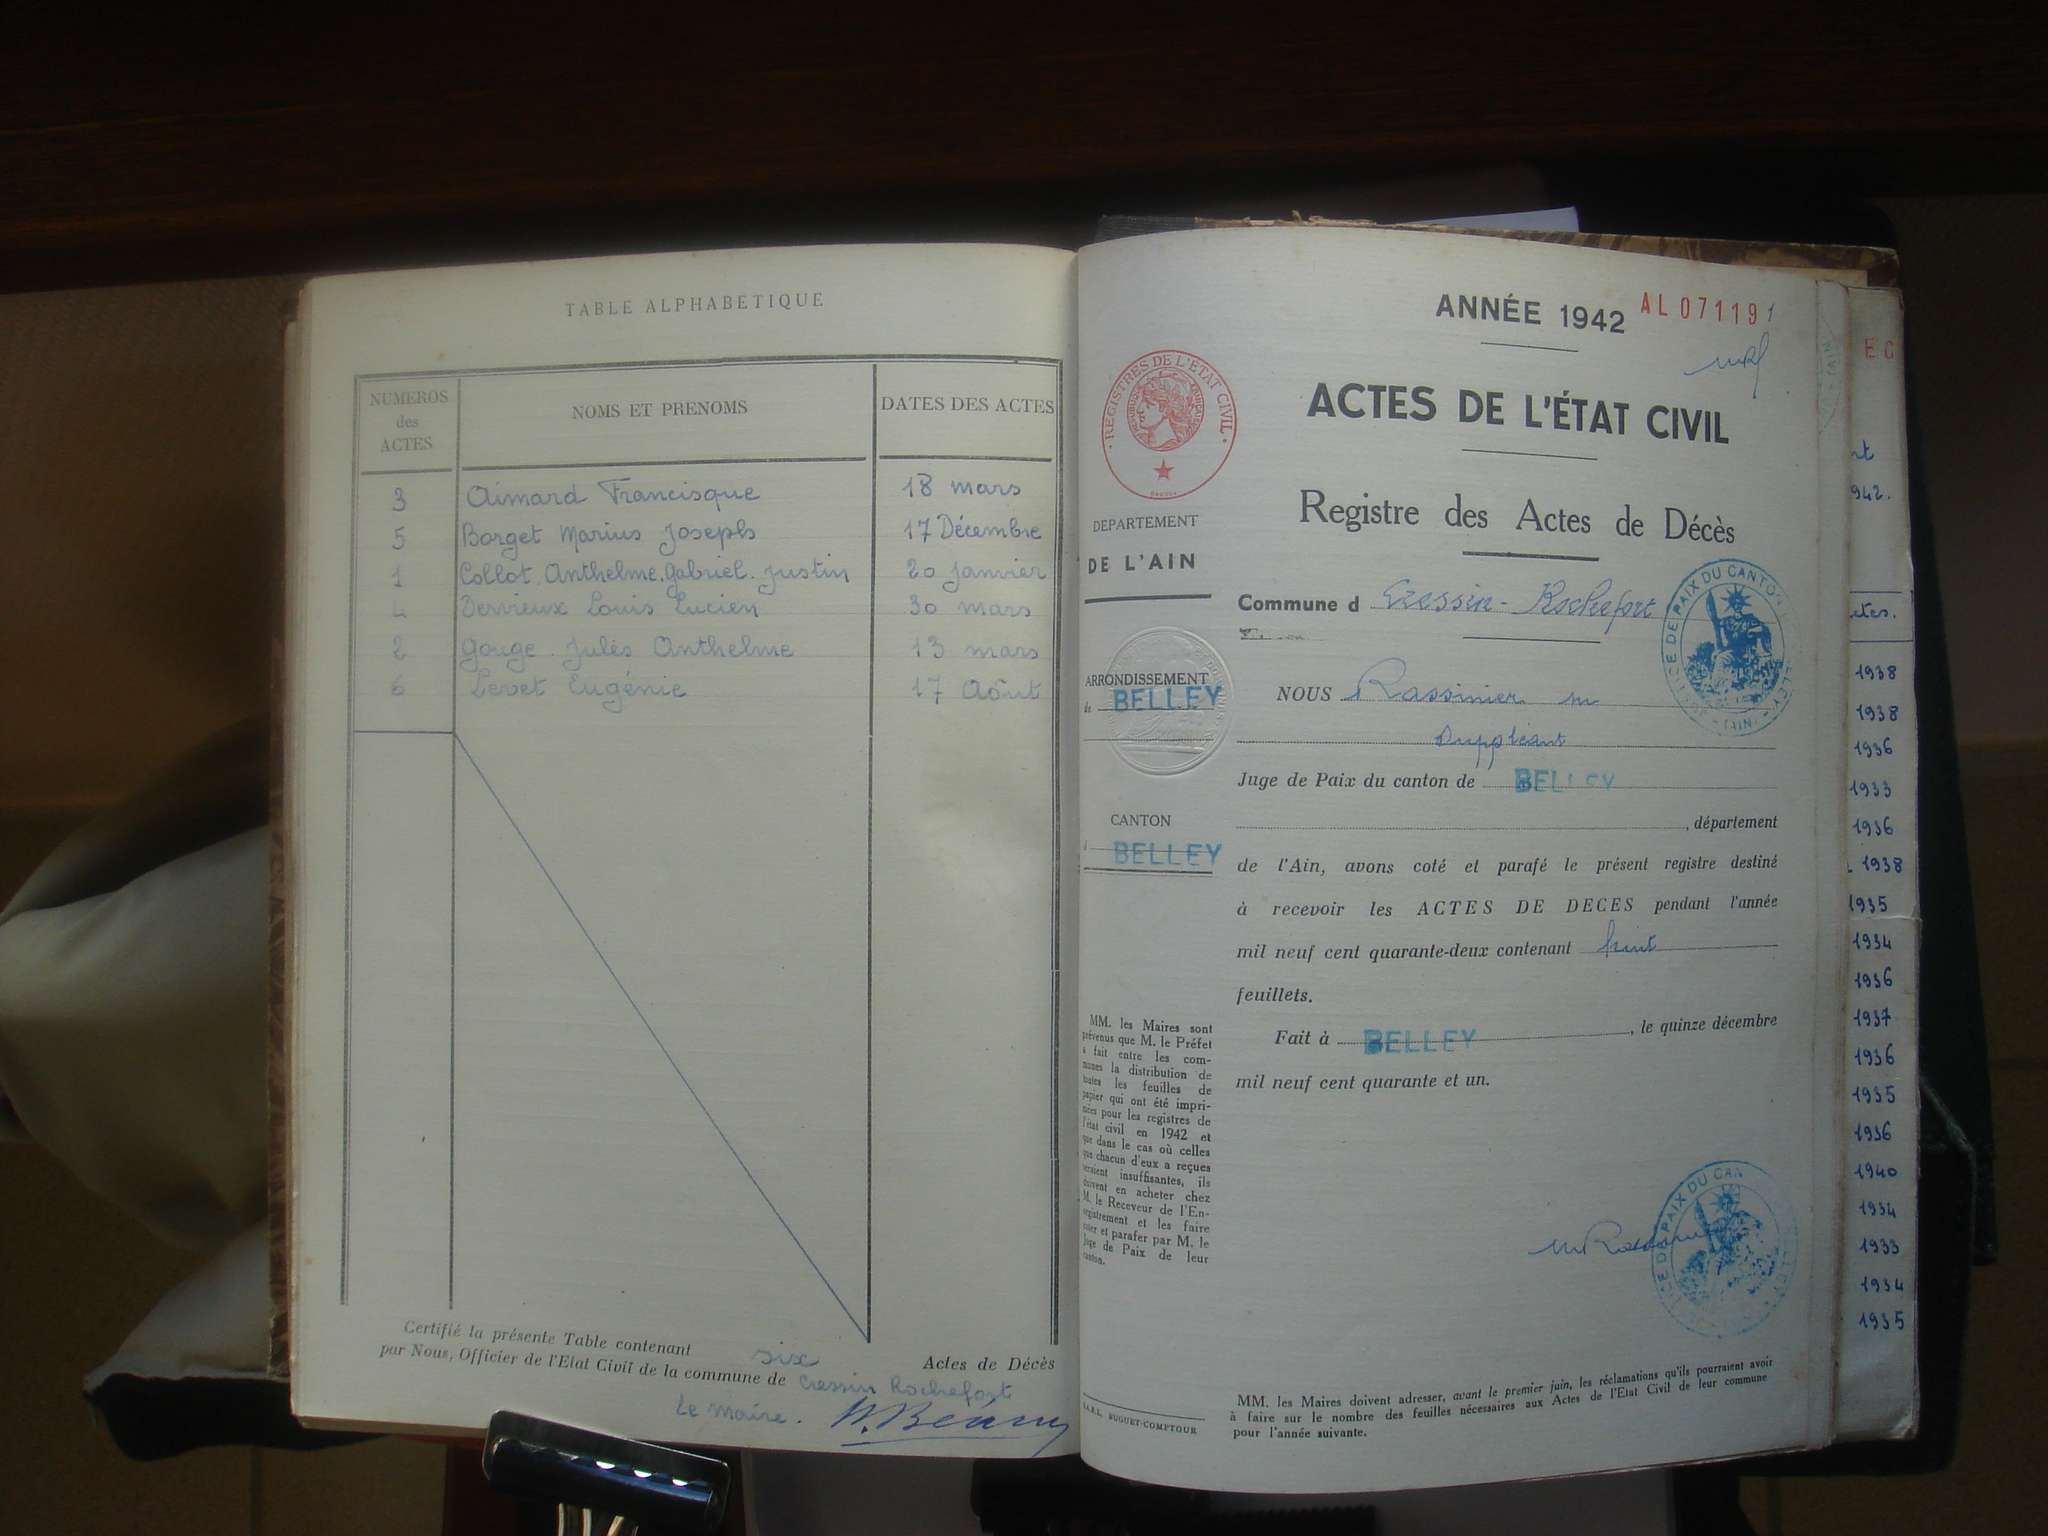 TABLE ALPHABETIQUE
NUMEROS des ACTES
NOMS ET PRENOMS
DATES DES ACTES
3 Aimard Francisque 18 mars
5 Borget Marius Joseph 17 Décembre
1 Collot Anthelme Gabriel Justin 20 janvier
4 Dervieux Louis Lucien 30 mars
2 Gouge Jules Anthelme 13 mars
6 Levet Eugénie 17 Août
Certifié la présente Table contenant six Actes de Décès
par Nous, Officier de l'Etat Civil de la commune de Cressin Rochefort
Le Maire.
ANNÉE 1942
AL 071191
ACTES DE L'ÉTAT CIVIL
Registre des Actes de Décès
REGISTRES DE L'ÉTAT CIVIL
DEPARTEMENT
DE L'AIN
ARRONDISSEMENT
de BELLEY
CANTON
BELLEY
Commune d Cressin-Rochefort
NOUS Rassinier m
Suppléant
Juge de Paix du canton de BELLEY
, département
de l'Ain, avons coté et parafé le présent registre destiné
à recevoir les ACTES DE DECES pendant l'année
mil neuf cent quarante-deux contenant huit
feuillets.
Fait à BELLEY, le quinze décembre
mil neuf cent quarante et un.
MM. les Maires sont
prévenus que M. le Préfet
a fait entre les com-
munes la distribution de
toutes les feuilles de
papier qui ont été impri-
mées pour les registres de
l'état civil en 1942 et
que dans le cas où celles
que chacun d'eux a reçues
seraient insuffisantes, ils
doivent en acheter chez
M. le Receveur de l'En-
registrement et les faire
coter et parafer par M. le
Juge de Paix de leur
canton.
JUSTICE DE PAIX DU CANTON
(AIN)
DE PAIX DU CAN
MM. les Maires doivent adresser, avant le premier juin, les réclamations qu'ils pourraient avoir
à faire sur le nombre des feuilles nécessaires aux Actes de l'Etat Civil de leur commune
pour l'année suivante.
BUGUET-COMPTOUR
942.
1938
1938
1936
1933
1936
1938
1935
1934
1936
1937
1936
1935
1936
1940
1934
1933
1934
1935